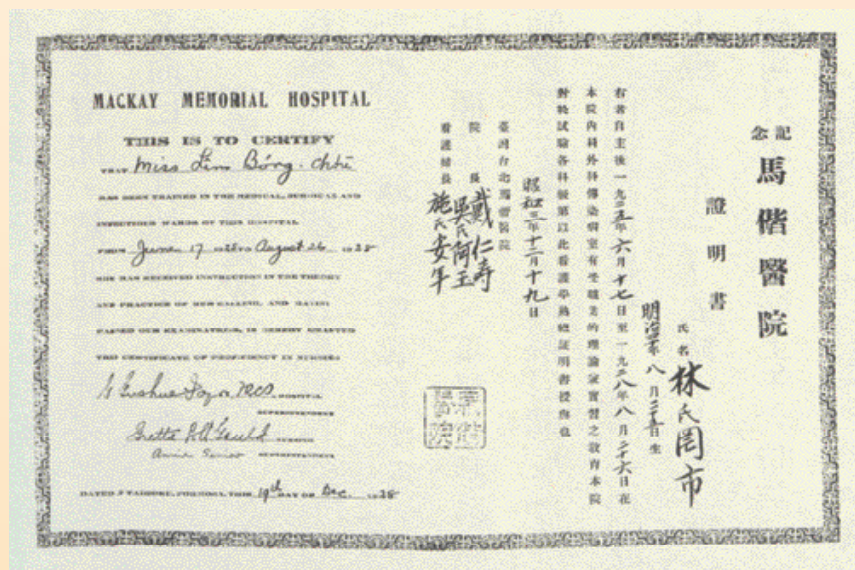 MACKAY MEMORIAL HOSPITAL
THIS IS TO CERTIFY
THAT Miss Lim Bóng-chhī
HAS BEEN TRAINED IN THE MEDICAL, SURGICAL AND
INFECTIOUS WARDS OF THIS HOSPITAL
FROM June 17 TO August 26 1928
SHE HAS RECEIVED INSTRUCTION IN THE THEORY
AND PRACTICE OF HER CALLING, AND HAVING
PASSED OUR EXAMINATIONS, IS HEREBY GRANTED
THIS CERTIFICATE OF PROFICIENCY IN NURSING
G. Gushue-Taylor HOSPITAL
SUPERINTENDENT
Gretta Gauld
SUPERINTENDENT
DATED TAIHOKU, FORMOSA, THIS 19th DAY OF Dec. 1928
記念
馬偕醫院
證明書
氏名 林氏罔市
年八月二十五日生
右者自主後一九二五年六月十七日至一九二八年八月二十六日在
本院內科外科傳染病室有受看護的理論並實習之教育本院
對於試驗各科及第以此看護學熟練証明書授與也
昭和三年十二月十九日
臺灣台北馬偕醫院
院長 戴仁壽
吳氏阿玉
看護婦長 施氏安年